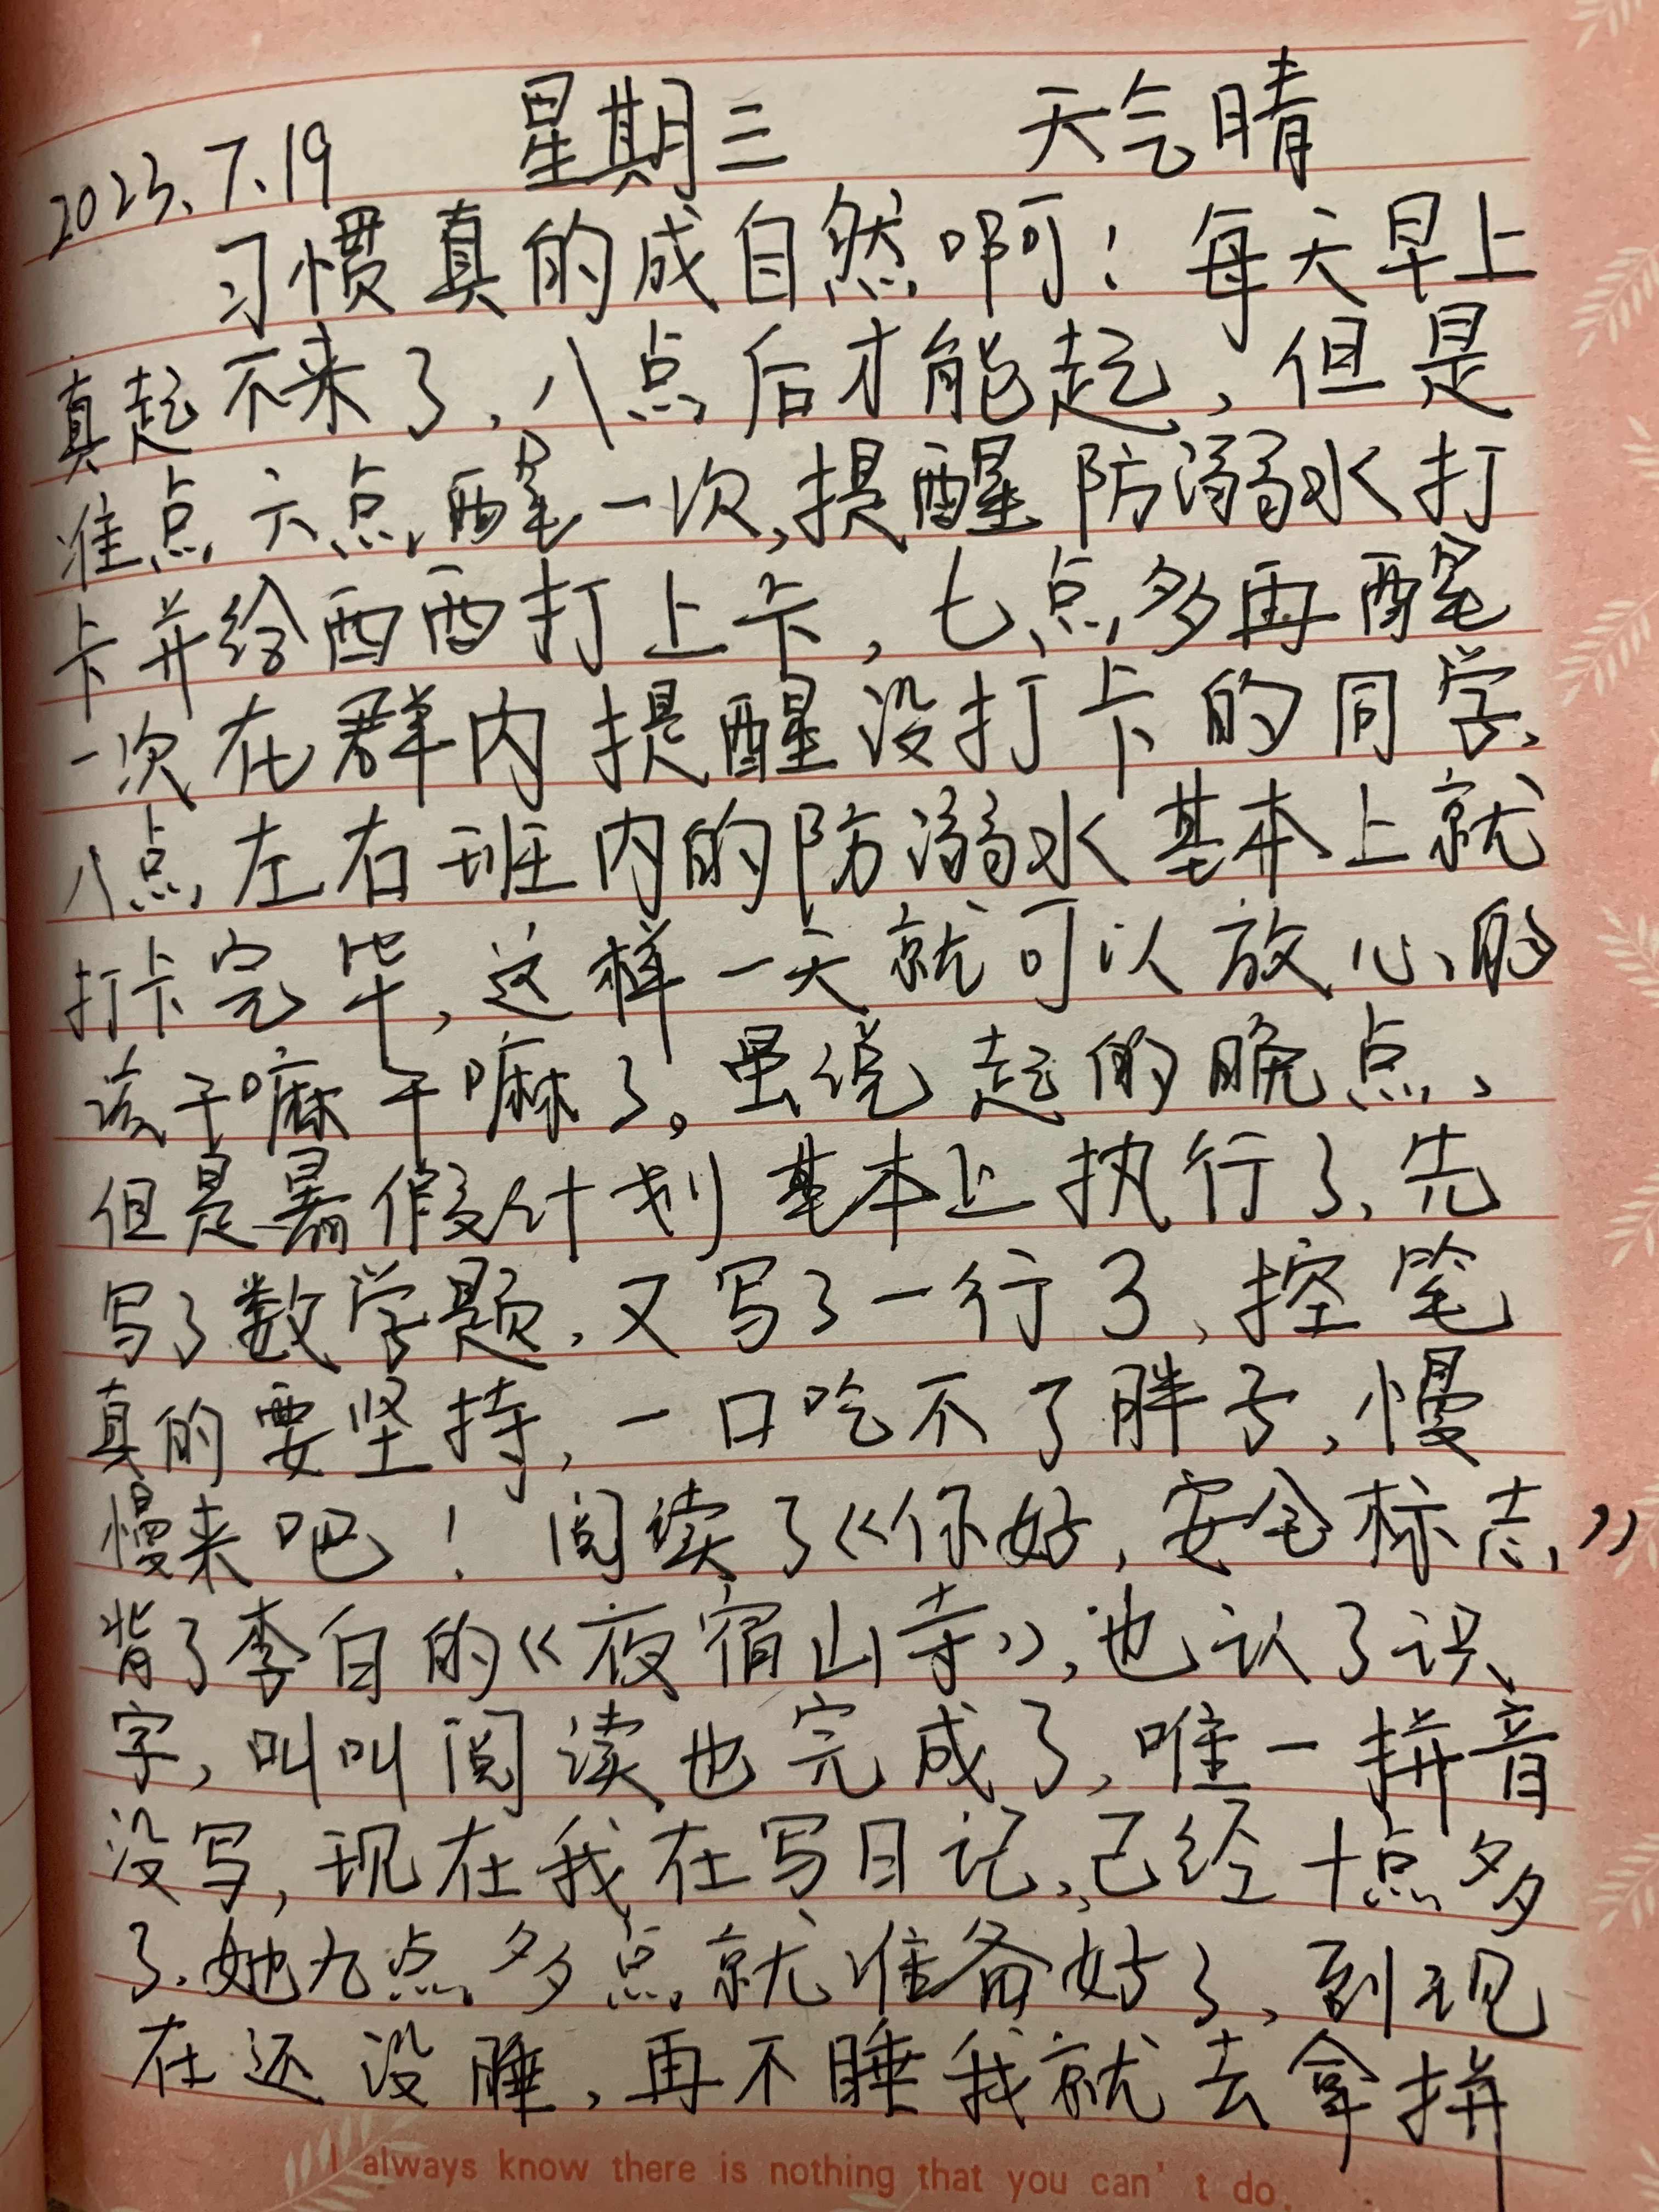 2023.7.19 星期三 天气晴
习惯真的成自然啊！每天早上
真起不来了，八点后才能起，但是
准点六点醒一次，提醒防溺水打
卡并给西西打上卡，七点多再醒
一次在群内提醒没打卡的同学，
八点左右班内的防溺水基本上就
打卡完毕，这样一天就可以放心的
该干嘛干嘛了。虽说起的晚点，
但是暑假计划基本上执行了，先
写了数学题，又写了一行3，控笔
真的要坚持，一口吃不了胖子，慢
慢来吧！阅读了《你好，安全标志》
背了李白的《夜宿山寺》，也认了识
字，叫叫阅读也完成了，唯一拼音
没写，现在我在写日记，已经十点多
了，她九点多点就准备好了，到现
在还没睡，再不睡我就去拿拼
I always know there is nothing that you can't do.